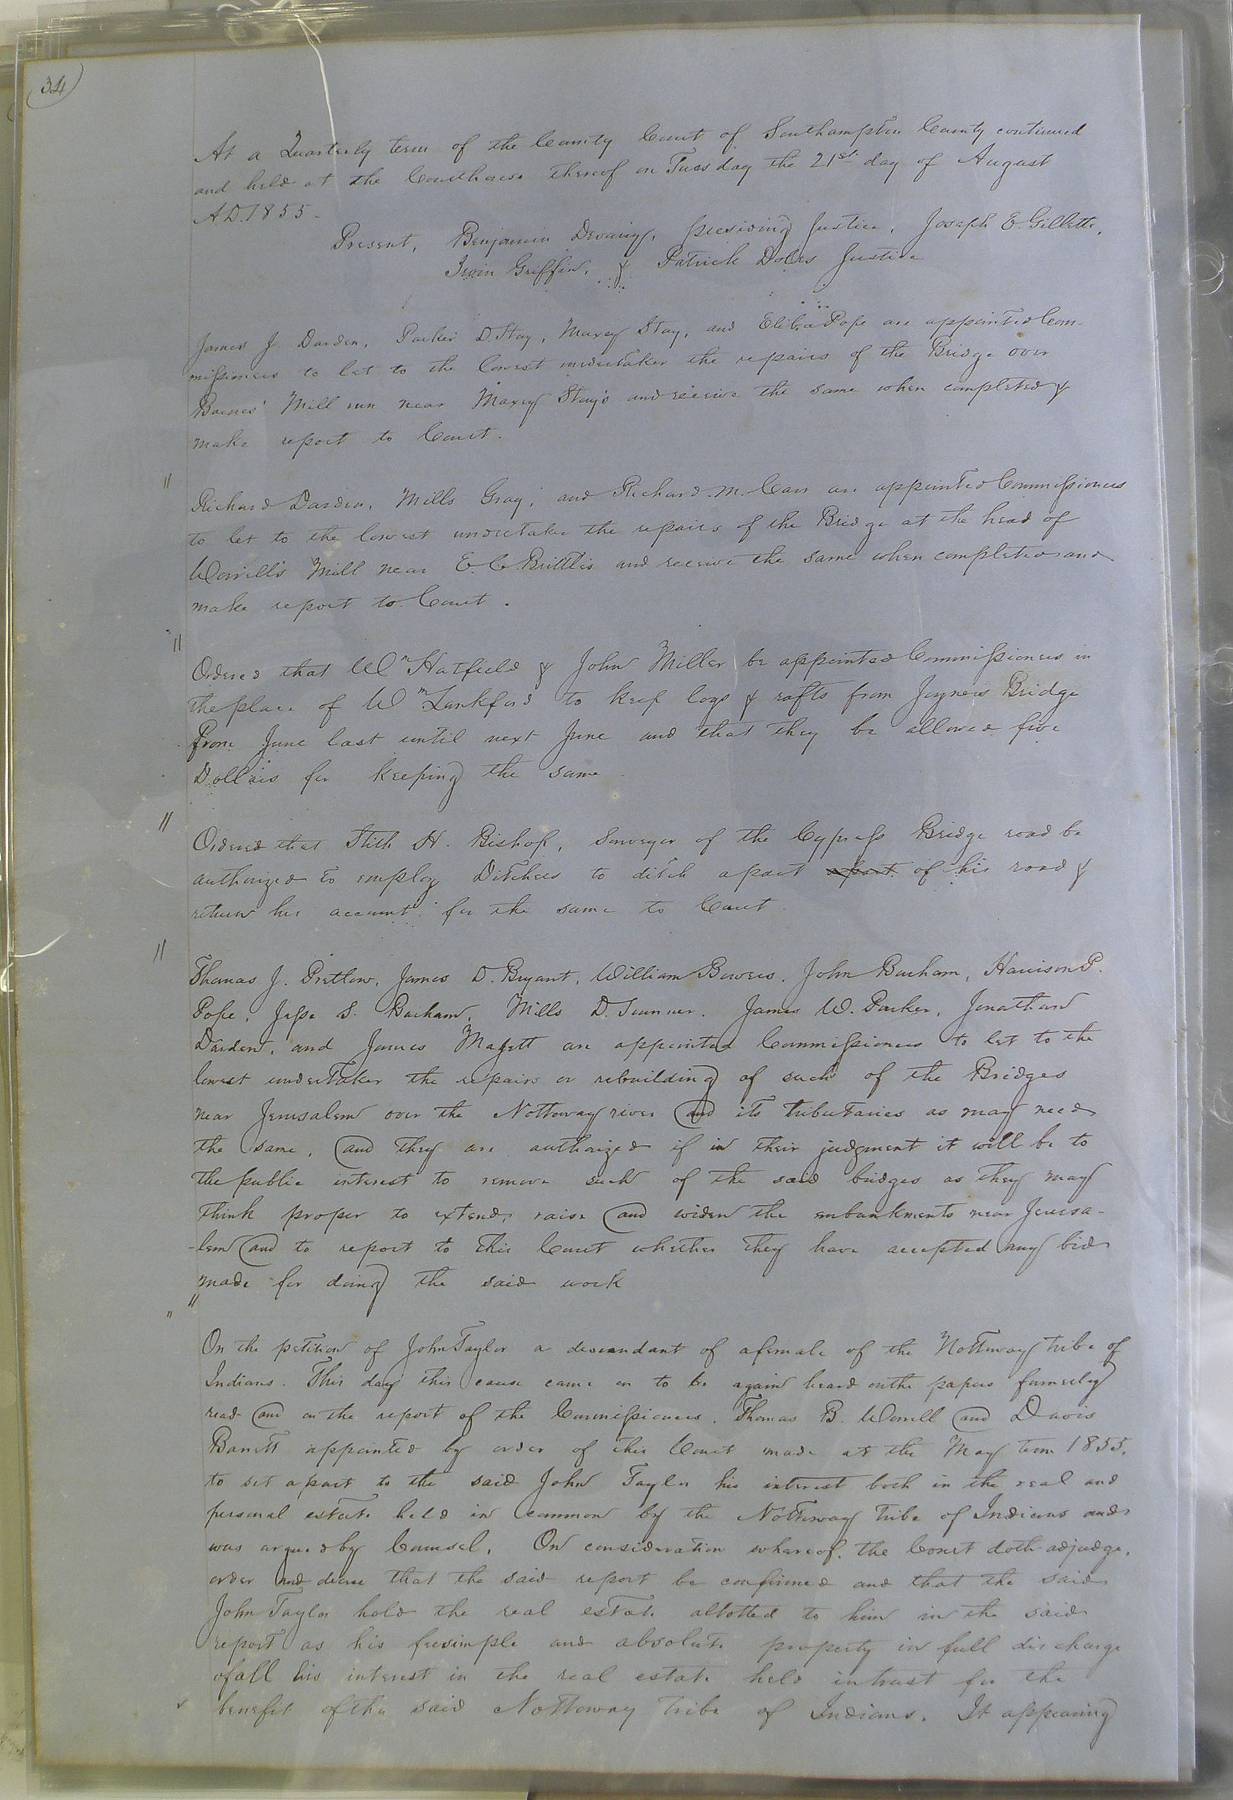 34
At a Quarterly term of the County Court of Southampton County continued
and held at the Courthouse thereof on Tuesday the 21st day of August
A.D. 1855.
Present, Benjamin Devany, presiding Justice, Joseph E. Gillette,
Irvin Griffin, & Patrick Doles Justice
James J. Darden, Parker D. Stay, Maxey Stay, and Eliba Pope are appointed Com-
missioners to let to the lowest undertaker the repairs of the Bridge over
Barnes' Mill run near Maxey Stay's and receive the same when completed &
make report to Court.
"
Richard Darden, Mills Gray, and Richard M. Carr are appointed Commissioners
to let to the lowest undertaker the repairs of the Bridge at the head of
Worrill's Mill near E. C. Brittle's and receive the same when completed and
make report to Court.
"
Ordered that Wm Hatfield & John Miller be appointed Commissioners in
the place of Wm Lankford to keep logs & rafts from Joyners Bridge
from June last until next June and that they be allowed five
Dollars for keeping the same
"
Ordered that Stith H. Bishop, Surveyor of the Cypress Bridge road be
authorized to employ Ditchers to ditch apart apart of his road &
return his account for the same to Court
"
Thomas J. Pretlow, James D. Bryant, William Bowers, John Barham, Harrison P.
Pope, Jesse S. Barham, Mills D. Sumner, James W. Parker, Jonathan
Darden, and James Magett are appointed Commissioners to let to the
lowest undertaker the repairs or rebuilding of such of the Bridges
near Jerusalem over the Nottoway river and its tributaries as may need
the same, and they are authorized if in their judgment it will be to
the public interest to remove such of the said bridges as they may
think proper to extend, raise and widen the embankments near Jerusa-
-lem and to report to this Court whether they have accepted any bid
made for doing the said work
" "
On the petition of John Taylor a descendant of a female of the Nottoway tribe of
Indians. This day this cause came on to be again heard on the papers formerly
read and on the report of the Commissioners, Thomas B. Worrell and Davis
Barrett appointed by order of this Court made at the May term 1855.
to set apart to the said John Taylor his interest both in the real and
personal estate held in common by the Nottoway tribe of Indians and
was argued by Counsel, On consideration whereof, the Court doth adjudge,
order and decree that the said report be confirmed and that the said
John Taylor hold the real estate allotted to him in the said
report as his feesimple and absolute property in full discharge
of all his interest in the real estate held intrust for the
benefit of the said Nottoway tribe of Indians. It appearing